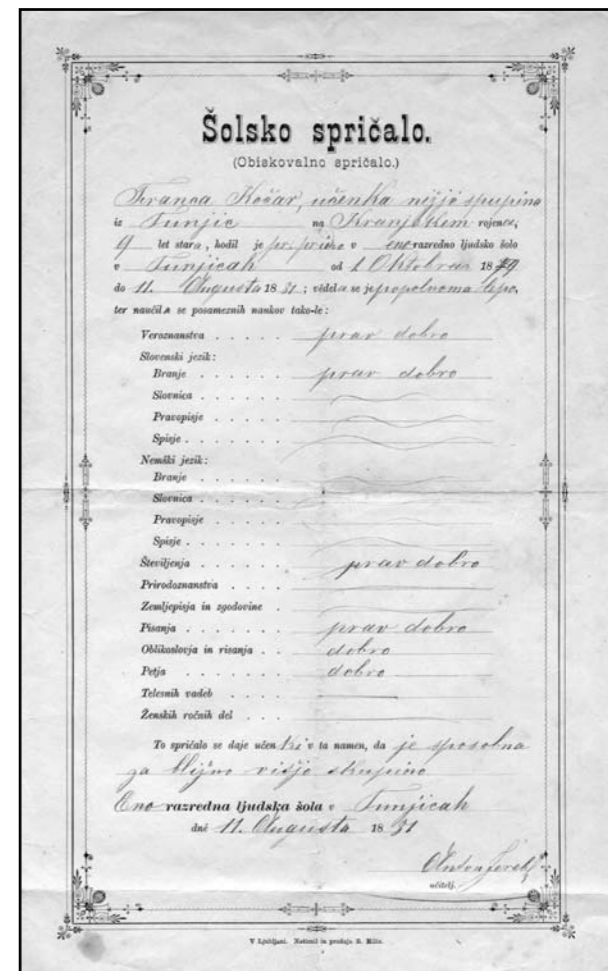 Šolsko spričalo.
(Obiskovalno spričalo.)
Franca Kočar, učenka nižje
iz Tunjic na Kranjskem rojena,
9 let stara, hodil je v eno razredno ljudsko šolo
v Tunjicah od 1. Oktobra 18
do 11. Augusta 1881; vedela se je popolnoma lepo,
ter naučila se posameznih naukov tako-le:
Veroznanstva . . . . . prav dobro
Slovenski jezik:
Branje . . . . . . prav dobro
Slovnica . . . . .
Pravopisje . . . .
Spisje . . . . . .
Nemški jezik:
Branje . . . . . .
Slovnica . . . . .
Pravopisje . . . .
Spisje . . . . . .
Številjenja . . . . . prav dobro
Prirodoznanstva . . . .
Zemljepisja in zgodovine .
Pisanja . . . . . . . prav dobro
Oblikoslovja in risanja . . dobro
Petja . . . . . . . dobro
Telesnih vadeb . . . .
Ženskih ročnih del . . .
To spričalo se daje učenki v ta namen, da je sposobna
za bližno višjo skupino
Eno razredna ljudska šola v Tunjicah
dné 11. Augusta 1881
Anton
učitelj.
V Ljubljani. Natisnil in prodaja R. Milic.